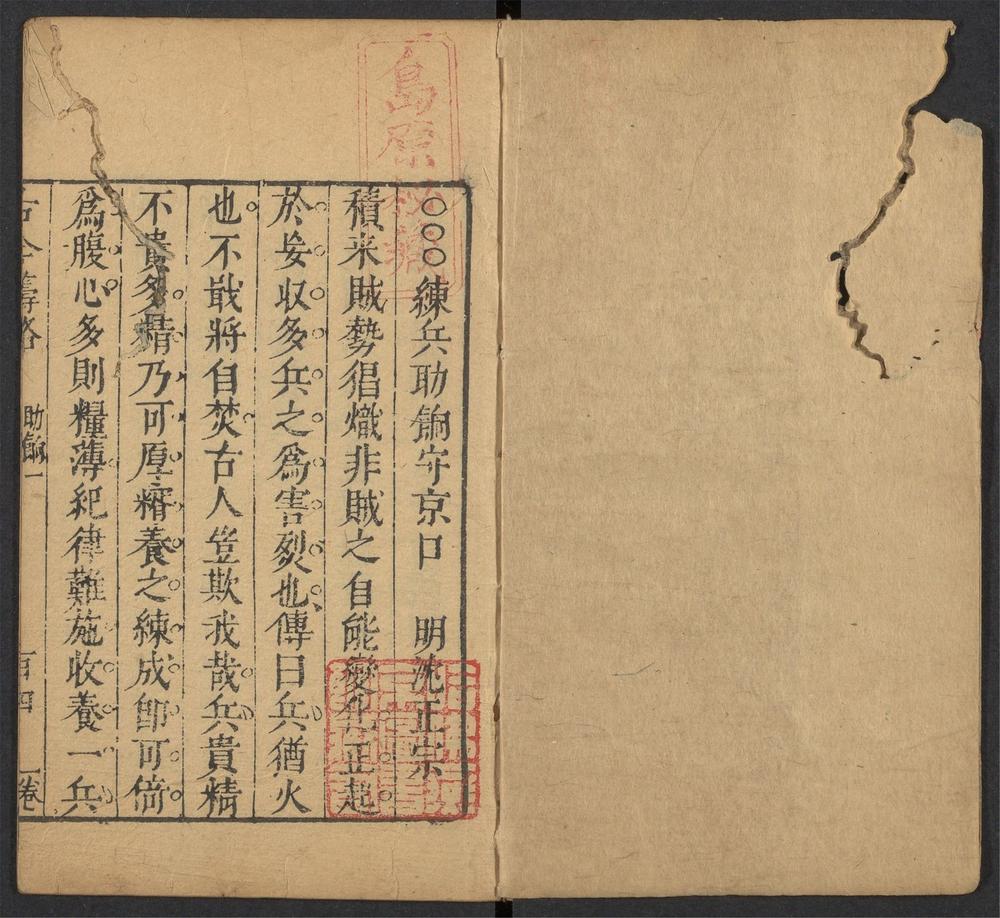 ○○○練兵助餉守京口　明沈正宗
積来賊勢猖熾非賊之自能變年正起
於妄收多兵之為害裂也傳曰兵猶火
也不戢將自焚古人豈欺我哉兵貴精
不貴多精乃可厚糈養之練成卽可倚
爲腹心多則糧薄紀律難施收養一兵
古今籌略　助餉一　百四　一卷
島原